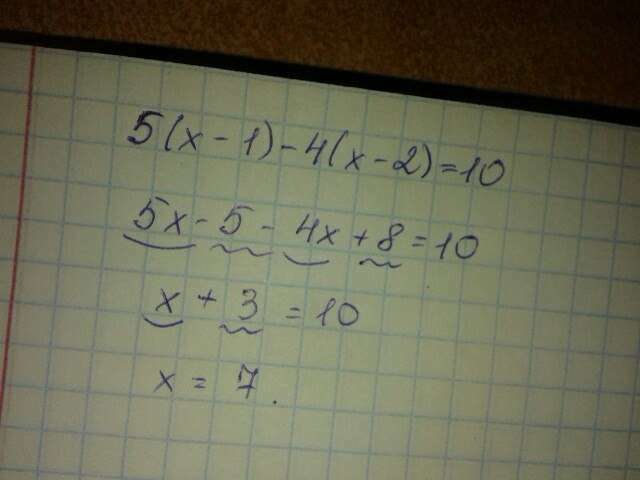 5(x-1)-4(x-2)=10
5x-5-4x+8=10
x+3=10
x=7.